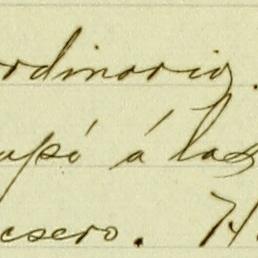 ordinario.
apó á las
esero. H